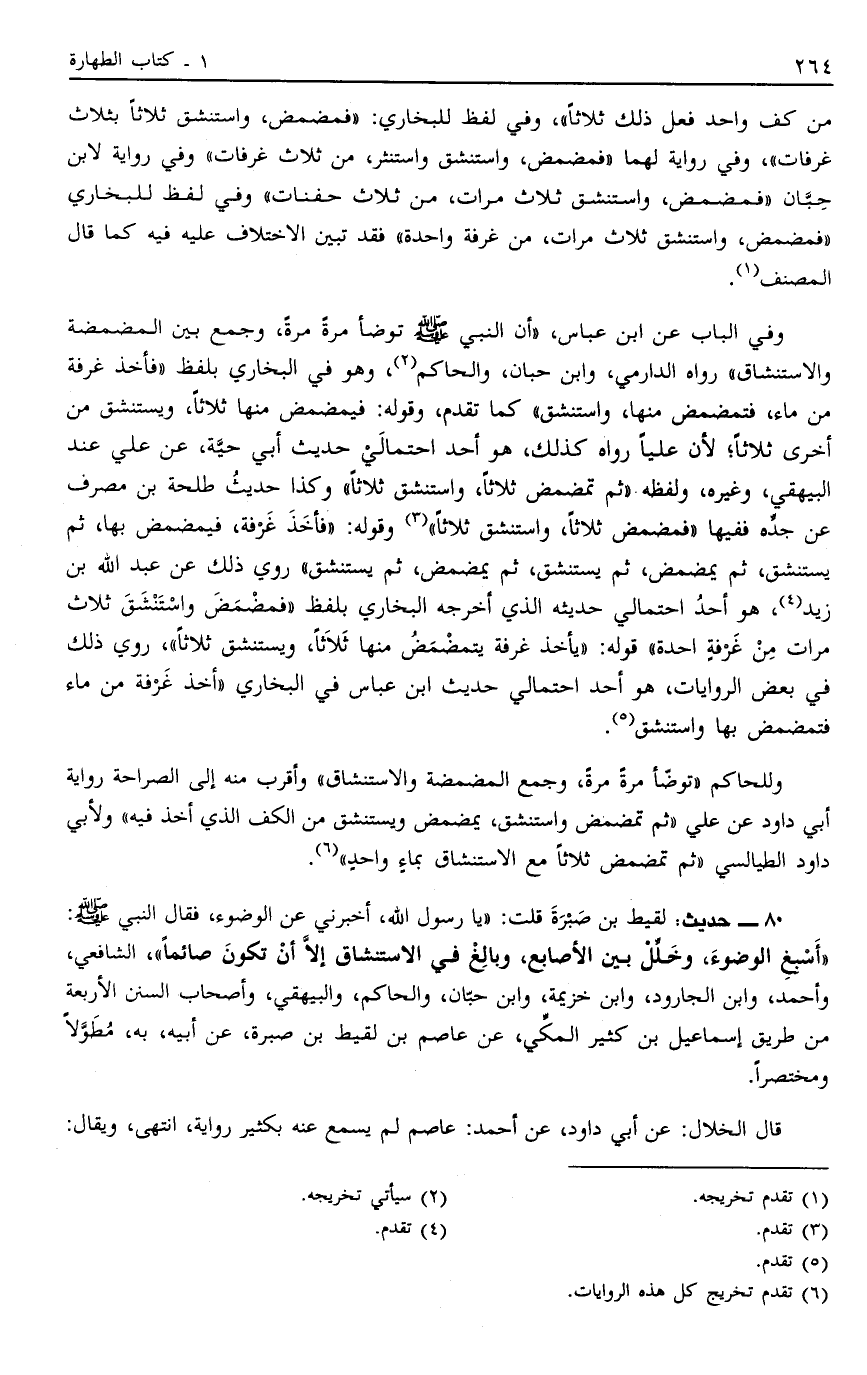 ٢٦٤ ١ - كتاب الطهارة
من كف واحد فعل ذلك ثلاثاً»، وفي لفظ للبخاري: «فمضمض، واستنشق ثلاثاً بثلاث
غرفات»، وفي رواية لهما «فمضمض، واستنشق واستنثر، من ثلاث غرفات» وفي رواية لابن
حِبَّان «فمضمض، واستنشق ثلاث مرات، من ثلاث حفنات» وفي لفظ للبخاري
«فمضمض، واستنشق ثلاث مرات، من غرفة واحدة» فقد تبين الاختلاف عليه فيه كما قال
المصنف(١).
وفي الباب عن ابن عباس، «أن النبي ﷺ توضأ مرةً مرةً، وجمع بين المضمضة
والاستنشاق» رواه الدارمي، وابن حبان، والحاكم(٢)، وهو في البخاري بلفظ «فأخذ غرفة
من ماء، فتمضمض منها، واستنشق» كما تقدم، وقوله: فيمضمض منها ثلاثاً، ويستنشق من
أخرى ثلاثاً؛ لأن علياً رواه كذلك، هو أحد احتمالَيْ حديث أبي حيَّة، عن علي عند
البيهقي، وغيره، ولفظه «ثم تمضمض ثلاثاً، واستنشق ثلاثاً» وكذا حديثُ طلحة بن مصرف
عن جدِّه ففيها «فمضمض ثلاثاً، واستنشق ثلاثاً»(٣) وقوله: «فأخَذَ غَرْفة، فيمضمض بها، ثم
يستنشق، ثم يمضمض، ثم يستنشق، ثم يمضمض، ثم يستنشق» روي ذلك عن عبد الله بن
زيد(٤)، هو أحدُ احتمالي حديثه الذي أخرجه البخاري بلفظ «فمضْمَضَ واسْتَنْشَقَ ثلاث
مرات مِنْ غَرْفةٍ احدة» قوله: «يأخذ غرفة يتمضْمَضُ منها ثَلَاثَاً، ويستنشق ثلاثاً»، روي ذلك
في بعض الروايات، هو أحد احتمالي حديث ابن عباس في البخاري «أخذ غَرْفة من ماء
فتمضمض بها واستنشق(٥).
وللحاكم «توضّأ مرةً مرةً، وجمع المضمضة والاستنشاق» وأقرب منه إلى الصراحة رواية
أبي داود عن علي «ثم تمضمض واستنشق، يمضمض ويستنشق من الكف الذي أخذ فيه» ولأبي
داود الطيالسي «ثم تمضمض ثلاثاً مع الاستنشاق بماءٍ واحدٍ»(٦).
٨٠ ــ حديث: لقيط بن صَبْرَةَ قلت: «يا رسول الله، أخبرني عن الوضوء، فقال النبي ﷺ:
«أَسْبِغِ الوضوءَ، وخَلِّلْ بين الأصابع، وبالِغْ في الاستنشاق إلاَّ أنْ تكونَ صائماً»، الشافعي،
وأحمد، وابن الجارود، وابن خزيمة، وابن حبّان، والحاكم، والبيهقي، وأصحاب السنن الأربعة
من طريق إسماعيل بن كثير المكِّي، عن عاصم بن لقيط بن صبرة، عن أبيه، به، مُطَوَّلاً
ومختصراً.
قال الخلال: عن أبي داود، عن أحمد: عاصم لم يسمع عنه بكثير رواية، انتهى، ويقال:
(١) تقدم تخريجه. (٢) سيأتي تخريجه.
(٣) تقدم. (٤) تقدم.
(٥) تقدم.
(٦) تقدم تخريج كل هذه الروايات.